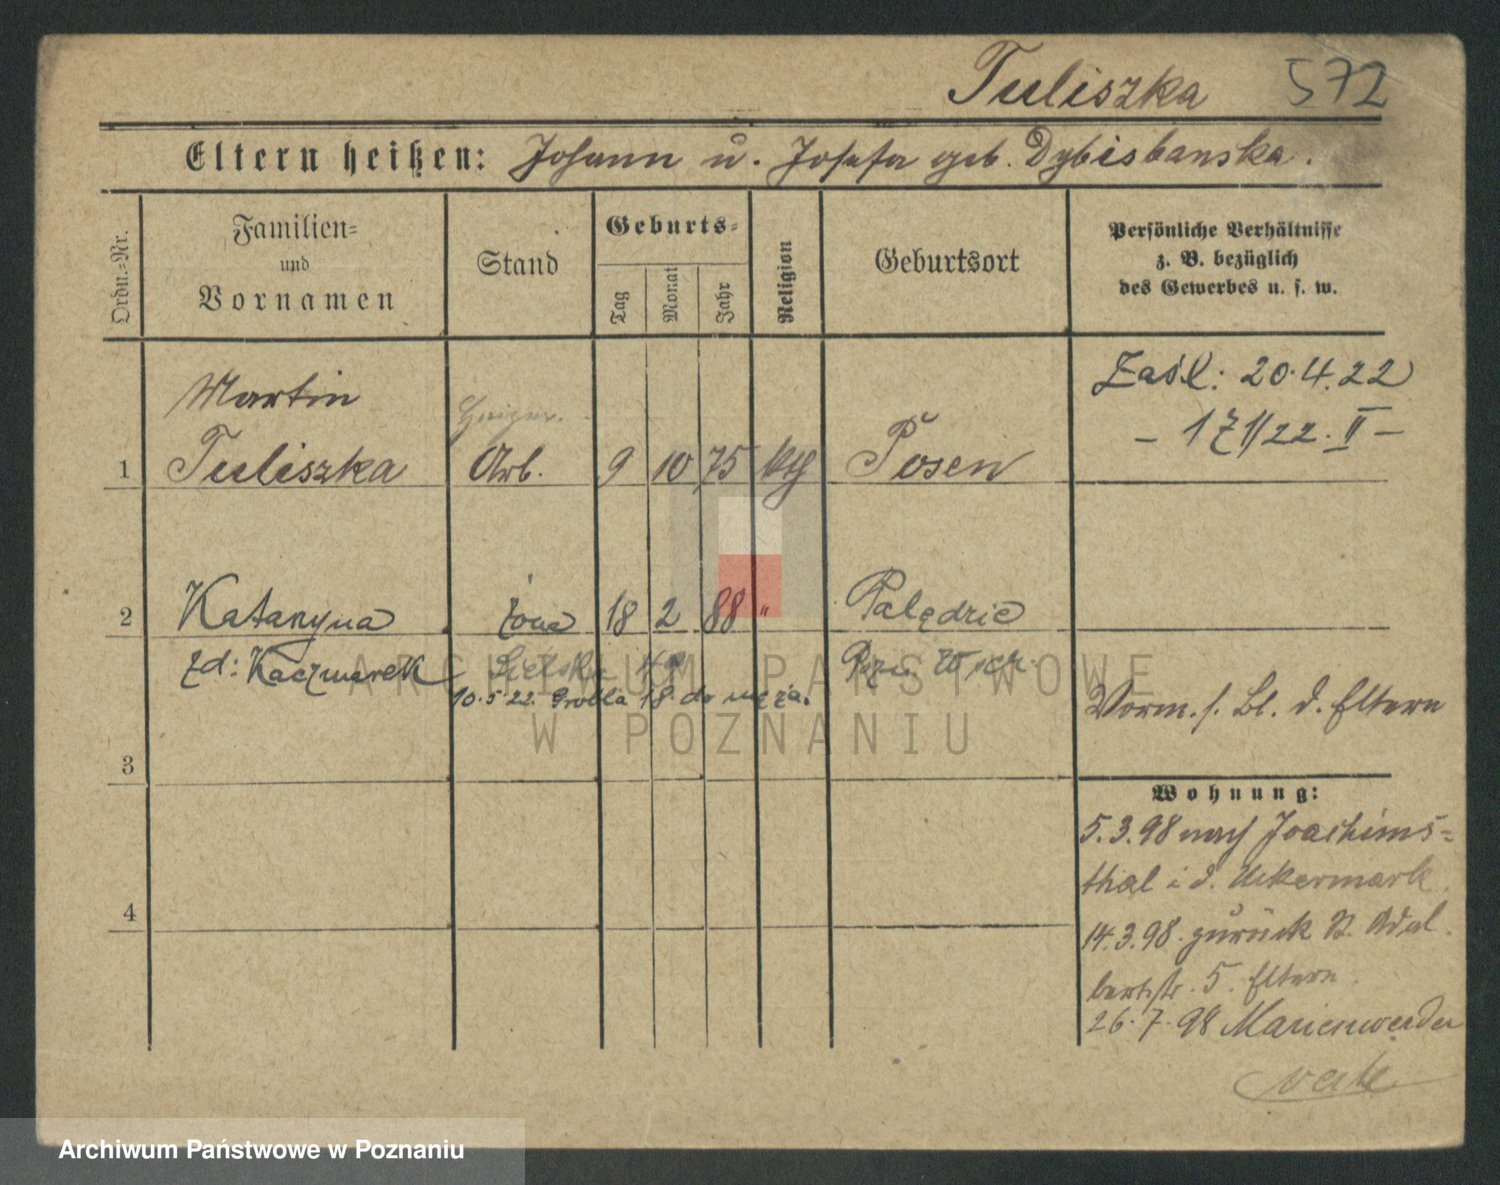 Tuliszka 572
Eltern heißen: Johann u. Josefa geb. Dybisbanska.
Ordn.=Nr.
Familien=
und
Vornamen
Stand
Geburts=
Tag
Monat
Jahr
Religion
Geburtsort
Persönliche Verhältnisse
z. B. bezüglich
des Gewerbes u. s. w.
Martin
Zaśl: 20.4.22
1 Tuliszka Arb. 9 10 75 kth Posen
– 171/22. II –
2 Katarzyna żona 18 2 88 " Palędzie
zd: Kaczmarek
10.5 22. Grobla 18 do męża.
Vorm. s. Bl. d. Eltern
3
Wohnung:
5.3.98 nach Joachims=
thal i d. Uckermark.
4
14.3.98. zurück St. Adal
bertstr. 5. Eltern.
26.7.98 Marienwerder
ARCHIWUM PAŃSTWOWE
W POZNANIU
Archiwum Państwowe w Poznaniu